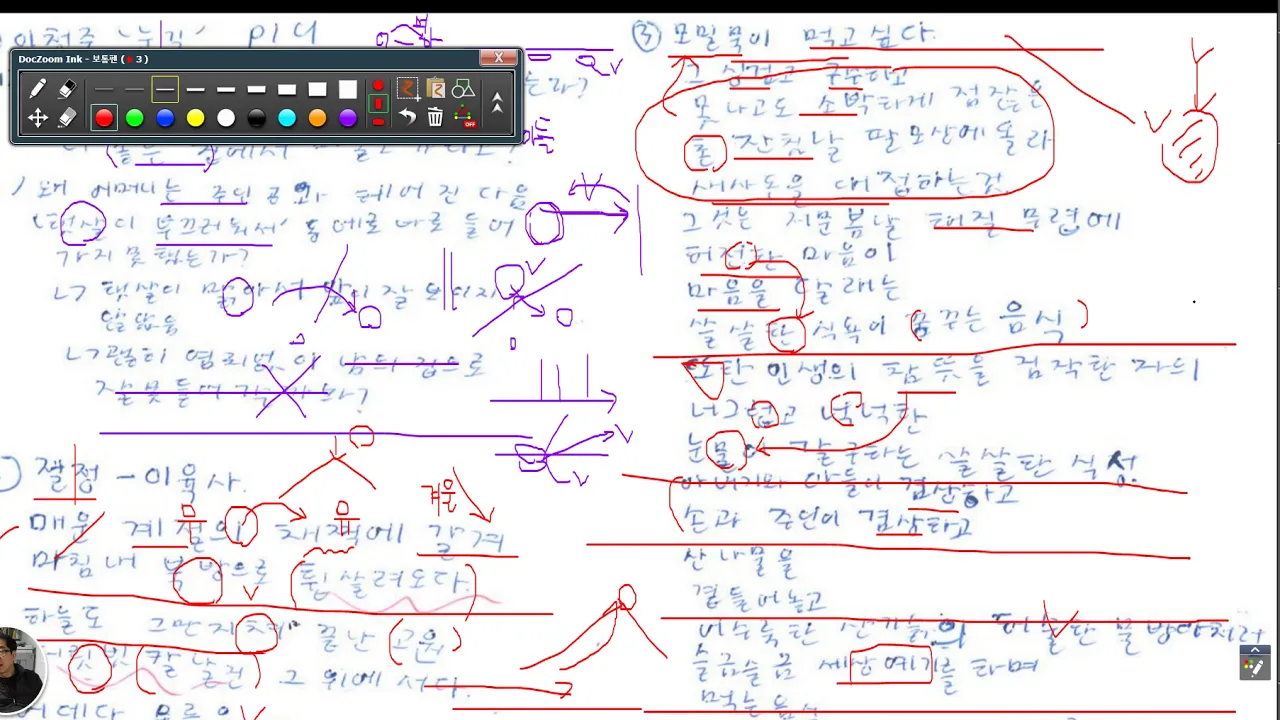 이청준 '눈길' P14
DocZoom Ink - 보통펜 ( 3 )
OFF
/ 왜 어머니는 주인공과 헤어진 다음
(햇살이 부끄러워서 동네로 바로 들어
가지 못했는가?
ㄴㄱ 햇살이 맑아서 앞이 잘 보이지
않았음
잘못 들어
절정 - 이육사.
겨울
매운 계절의 채찍에 갈겨
마침내 북방으로 휩쓸려오다.
하늘도 그만 지쳐 끝난 고원
서릿빛 칼날진 그 위에 서다.
어데다 무릎
③ 모밀묵이 먹고 싶다.
그 싱겁고 구수하고
못나고도 소박하게 점잖은
촌 잔칫날 팔모상에 올라
새사돈을 대접하는 것
그것은 저문 봄날 해질 무렵에
허전한 마음이
마음을 달래는
쓸쓸한 식욕이 꿈꾸는 음식
또한 인생의 참뜻을 짐작한 자의
너그럽고 넉넉한
눈물이 갈구하는 쓸쓸한 식성
아버지와 아들이 겸상하고
손과 주인이 겸상하고
산나물을
곁들여놓고
어수룩한 산기슭의 허술한 물방아처럼
슬금슬금 세상 얘기를 하며
먹는 음식